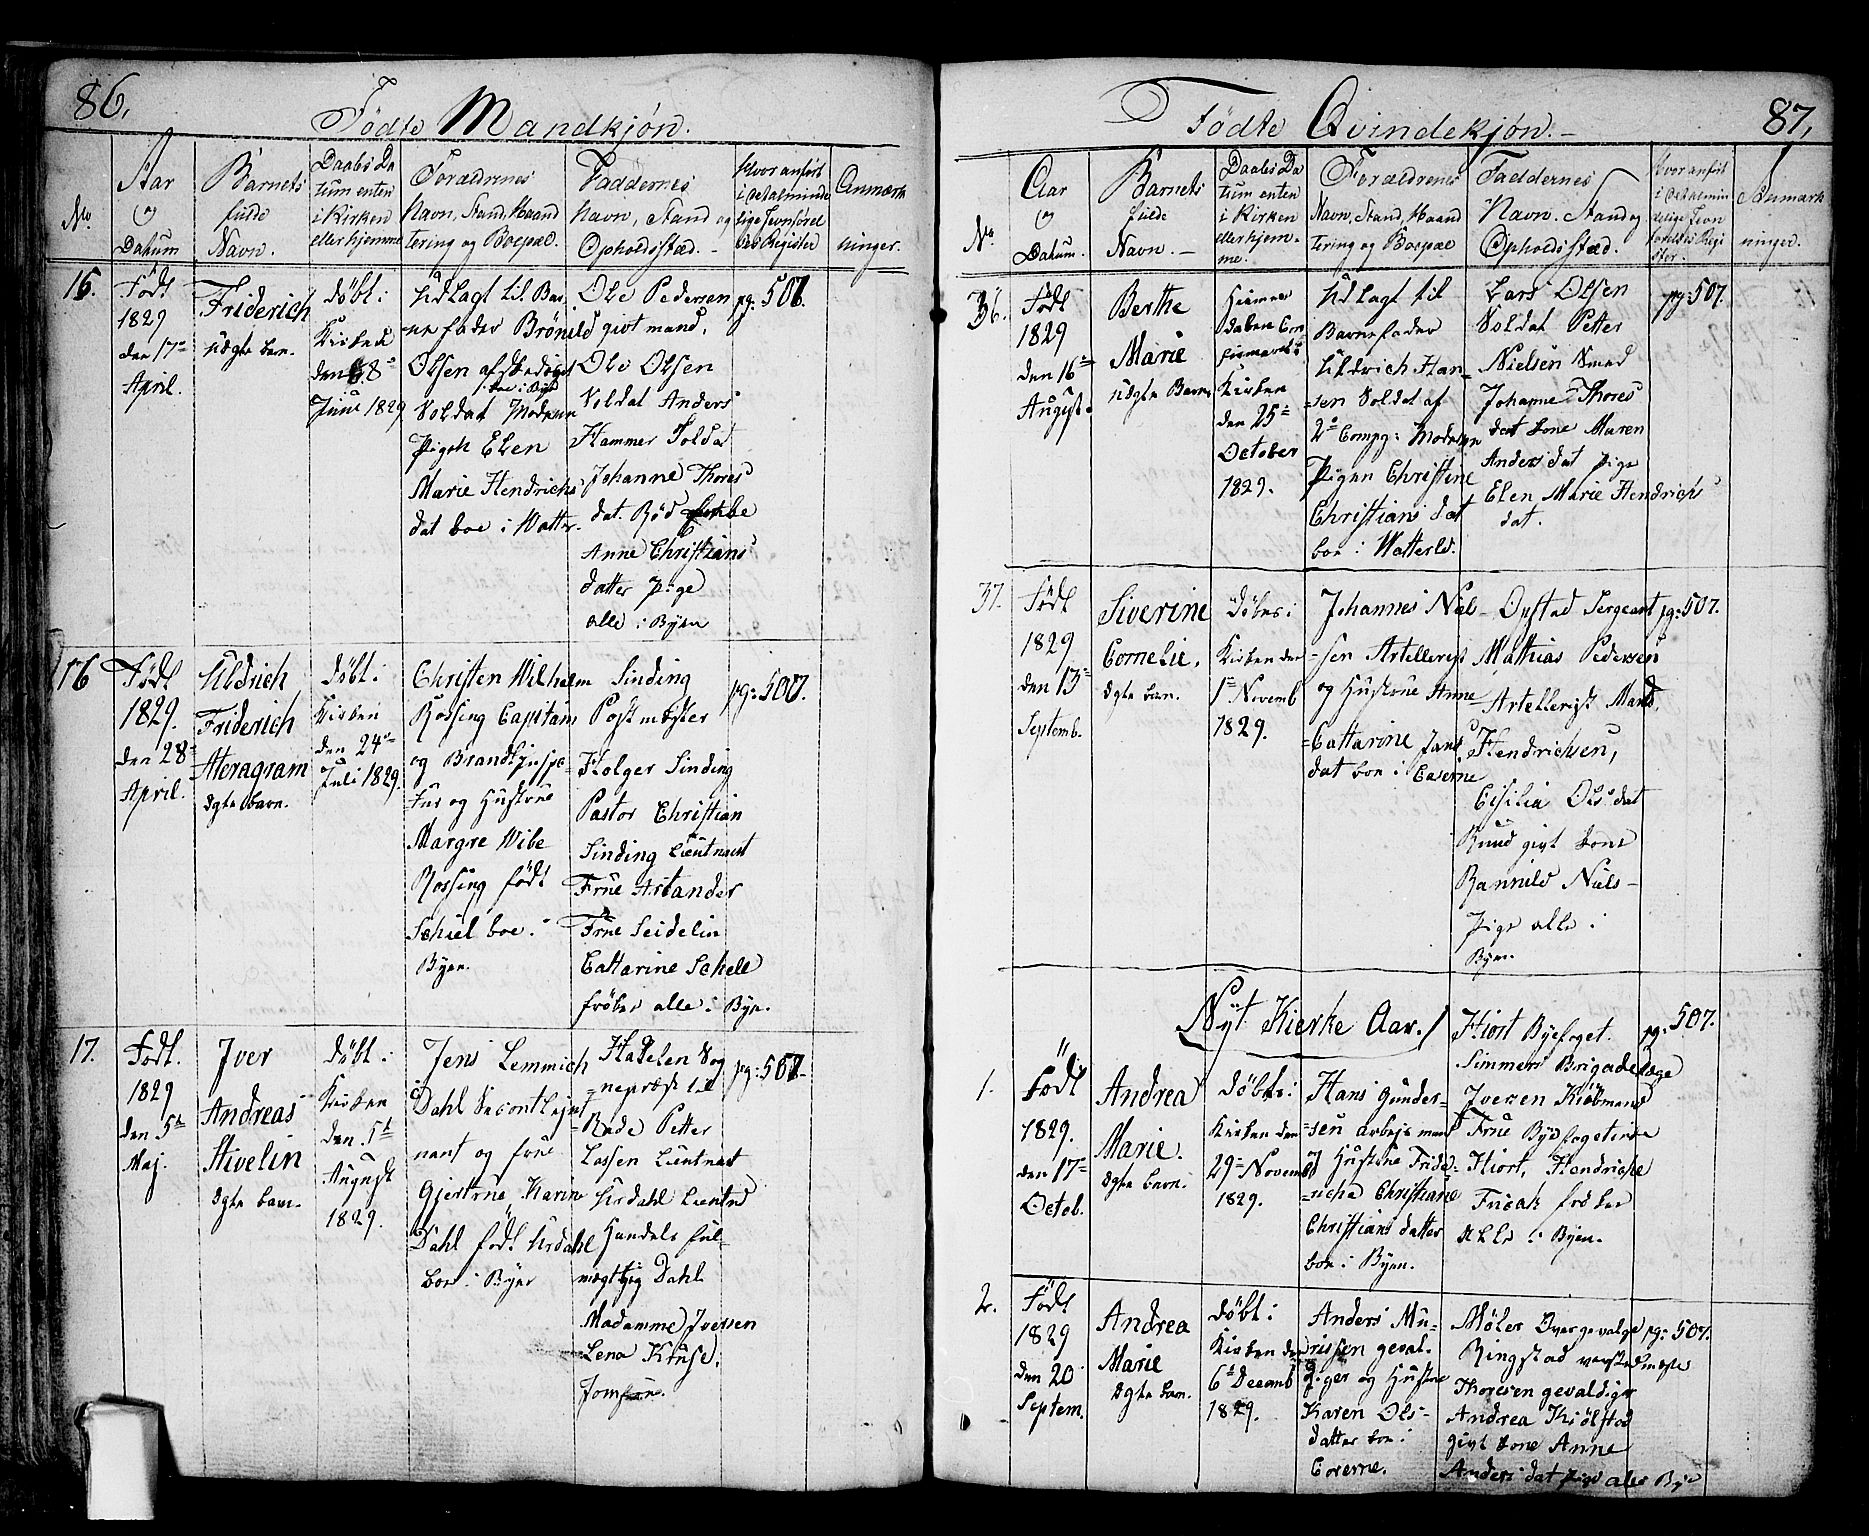 86.
Fødte Mandkjøn.
No.
Aar
og
Datum
Barnets
fulde
Navn.
Daabs Da
tum enten
i Kirken
eller hjemme
Forældrenes
Navn, Stand, Haand
tering og Boepæl.
Faddernes
Navn, Stand og
Opholdssted.
Hvor anført
i det alminde
lige Jevnførel
ses Register
Anmærk
ninger.
15.
Født
1829
den 17de
April.
Friderich
uægte barn.
døbt i
Kirken
den 8de
Juni 1829
Udlagt til Bar
nefader Brönild
Olsen afskediget
boe i Byd
Soldat Moderen
Pigen Elen
Marie Hendrichs
dat boe i Watter.
Ole Pedersen
givt mand,
Ole Olsen
Soldat Anders
Hammer Soldat
Johanne Thores
dat. Röd
Anne Christians
datter pige
alle i Byen
pg: 507.
16
Født
1829.
den 28de
April.
Uldrich
Friderich
Ægte barn.
døbt i
Kirken
den 24de
Juli 1829.
Christen Wilhelm
Rossing Capitain
og Brandinspe-
tur og Hustrue
Margre Wibe
Rossing født
Schiel boe i
Byen.
Sinding
Postmester
Holger Sinding
Pastor Christian
Sinding Lieutnant
Frue Astander
Frue Seidelin
Cattarine Schele
frøken alle i Byen.
pg: 507.
17.
Født.
1829
den 5te
Maj.
Iver
Andreas
Hivelin
Ægte barn.
døbt i
Kirken
den 5te
August
1829.
Jens Lemmich
Dahl Secontliejt
nant og frue
Gjertrue Karin
Dahl født Urdahl
boe i Byen
Sog
nepræst til
Rade Petter
Lassen Lieutnant
Urdahl Lieutnd
Handels ful-
mægtijg Dahl
Madamme Iversen
Lena Kruse.
Jomfrue.
pg: 507.
87.
Fødte Qvindekjøn.
No.
Aar
og
Datum.
Barnets
fulde
Navn.
Daabs Da
tum enten
i Kirken
eller hjem-
me.
Forældrenes
Navn, Stand, Haand
tering og Boepæl
Faddernes
Navn. Stand og
Opholdssted.
Hvor anført
i det almin
delige Jevn
førelses Regi
ster.
Anmærk
ninger.
36.
Født
1829
den 16de
August.
Berthe
Marie
uægte Barn
Hjemme
daben Con
firmeret i
Kirken
den 25de
October
1829.
Udlagt til
Barnefader
Uldrich Han-
sen Soldat af
2de Compg: Moderen
Pigen Christine
Christians dat
boe i Watterld.
Lars Olsen
Soldat Petter
Nielsen Smed
Johanne Thores
dat kone Maren
Anders dat pige
Elen Marie Hendrichs
dat.
pg 507.
37.
Født
1829
den 13de
Septemb.
Siverine
Cornelie.
Ægte barn.
Døbes i
Kirken den
1de Novemb
1829.
Johannes Niel-
sen Artellerist
og Hustrue Anne
Cattarine Jans
dat boe i Caserne
Opstad Sergeant
Mathias Pedersen
Artellerist Mand,
Hendrichsen,
Cisilia Ols dat
Knud givt kone
Rannild Niels-
Pige alle i
Byen.
pg: 507.
Nyt Kierke Aar.
1.
Født
1829.
den 17de
Octob.
Andrea
Marie.
Ægte barn.
Døbt i
Kirken den
29de Novemb
1829.
Hans Gunder-
sen arbejs mand
Hustrue Fride-
richa Christiane
Christians datter
boe i Byen.
Hiort Byefoget.
Simmers Brigadelæge
Iversen Kiøbmand
Frue Byfogetinde
Hiort, Hendriche
frøken
Alle i Byen.
pg: 507.
2.
Født
1829
den 20
Septem.
Andrea
Marie
Ægte barn.
døbt i
Kirken den
6te Decemb
1829.
Anders Mu-
rissen geval-
diger og Hustrue
Karen Ols-
datter boe i
Caserne.
Møler Overgevalge
Ringstad verstedmæste
Thoresen gevaldiger
Andrea Kiølstad
givt kone Anne
Anders dat pige alle Bye
pg: 507.